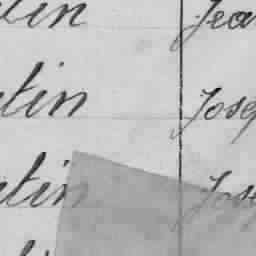 tin Jea
tin Josep
tin Jos